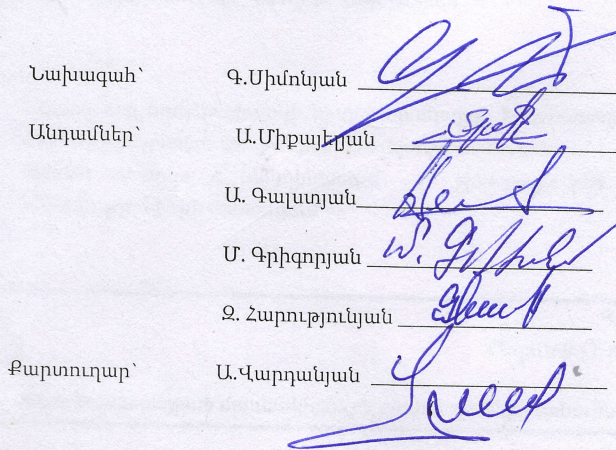 Նախագահ՝ Գ.Սիմոնյան
Անդամներ՝ Ա.Միքայելյան
Ա. Գալստյան
Մ. Գրիգորյան
Զ. Հարությունյան
Քարտուղար՝ Ա.Վարդանյան